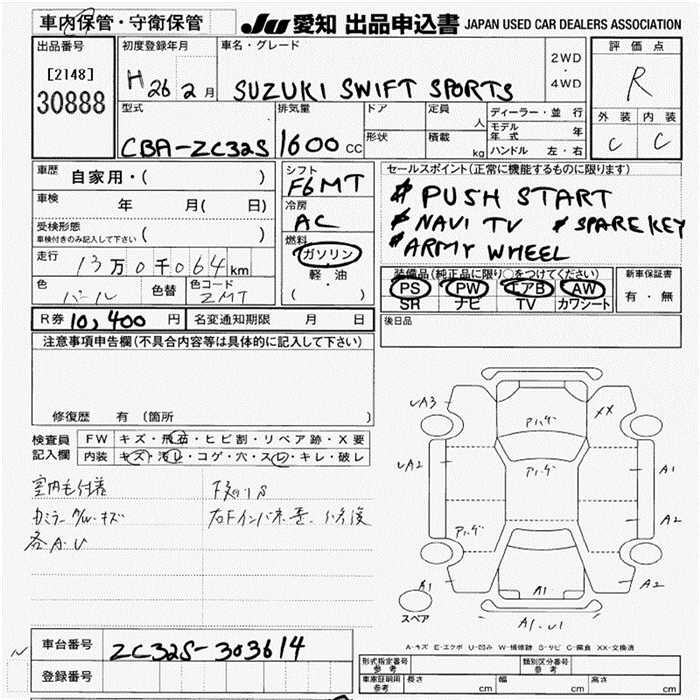 車内保管・守衛保管
JU 愛知 出品申込書 JAPAN USED CAR DEALERS ASSOCIATION
出品番号
[2148]
30888
初度登録年月
H 26 2月
車名・グレード
SUZUKI SWIFT SPORTS
2WD
・
4WD
評価点
R
外装 内装
C C
型式
CBA-ZC32S
排気量
1600 CC
ドア
形状
定員 人
積載 kg
ディーラー・並行
モデル年式 年
ハンドル 左・右
車歴
自家用・( )
車検
年 月( 日)
受検形態
車検付きのみ記入して下さい ( )
走行
13万0千064km
色
パール
色替
色コード
ZMT
シフト
F6MT
冷房
AC
燃料
ガソリン
軽・油
( )
セールスポイント(正常に機能するものに限ります)
# PUSH START
# NAVI TV # SPARE KEY
# ARMY WHEEL
装備品(純正品に限り○をつけてください)
PS PW エアB AW
SR ナビ TV カワシート
新車保証書
有・無
R券 10,400 円
名変通知期限 月 日
後日品
注意事項申告欄(不具合内容等は具体的に記入して下さい)
修復歴 有(箇所 )
検査員
記入欄
FW キズ・飛石・ヒビ割・リペア跡・X要
内装 キズ・汚レ・コゲ・穴・スレ・キレ・破レ
各A.U
A3
XX
A2
A1
A2
A1
A2
A1
A1.U1
スペア
A-キズ E-エクボ U-凹み W-補修跡 S-サビ C-腐食 XX-交換済
車台番号
ZC32S-303614
登録番号
型式指定番号
参考
類別区分番号
参考
車庫証明用
参考
長さ cm
幅 cm
高さ cm